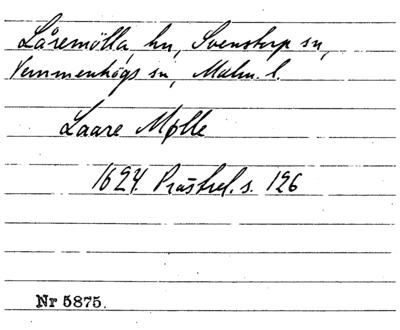 Låremölla, hu, Svenstorp sn,
Vemmenhögs sn, Malm. l.
Laare Mølle
1624. Prästrel. s. 126
Nr 5875.